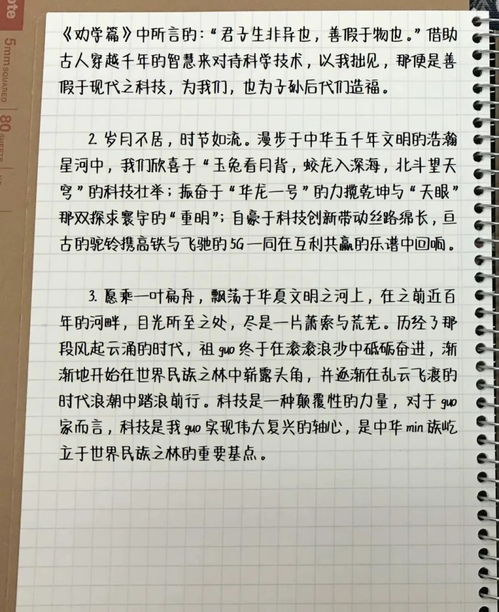 note
5mm SQUARED
80 SHEETS
《劝学篇》中所言的：“君子生非异也，善假于物也。”借助
古人穿越千年的智慧来对待科学技术，以我拙见，那便是善
假于现代之科技，为我们，也为子孙后代们造福。
2. 岁月不居，时节如流。漫步于中华五千年文明的浩瀚
星河中，我们欣喜于“玉兔看月背，蛟龙入深海，北斗望天
穹”的科技壮举；振奋于“华龙一号”的力揽乾坤与“天眼”
那双探求寰宇的“重明”；自豪于科技创新带动丝路绵长，亘
古的驼铃携高铁与飞驰的5G一同在互利共赢的乐谱中回响。
3. 愿乘一叶扁舟，飘荡于华夏文明之河上，在之前近百
年的河畔，目光所至之处，尽是一片萧索与荒芜。历经了那
段风起云涌的时代，祖guo终于在滚滚浪沙中砥砺奋进，渐
渐地开始在世界民族之林中崭露头角，并逐渐在乱云飞渡的
时代浪潮中踏浪前行。科技是一种颠覆性的力量，对于guo
家而言，科技是我guo实现伟大复兴的轴心，是中华min族屹
立于世界民族之林的重要基点。